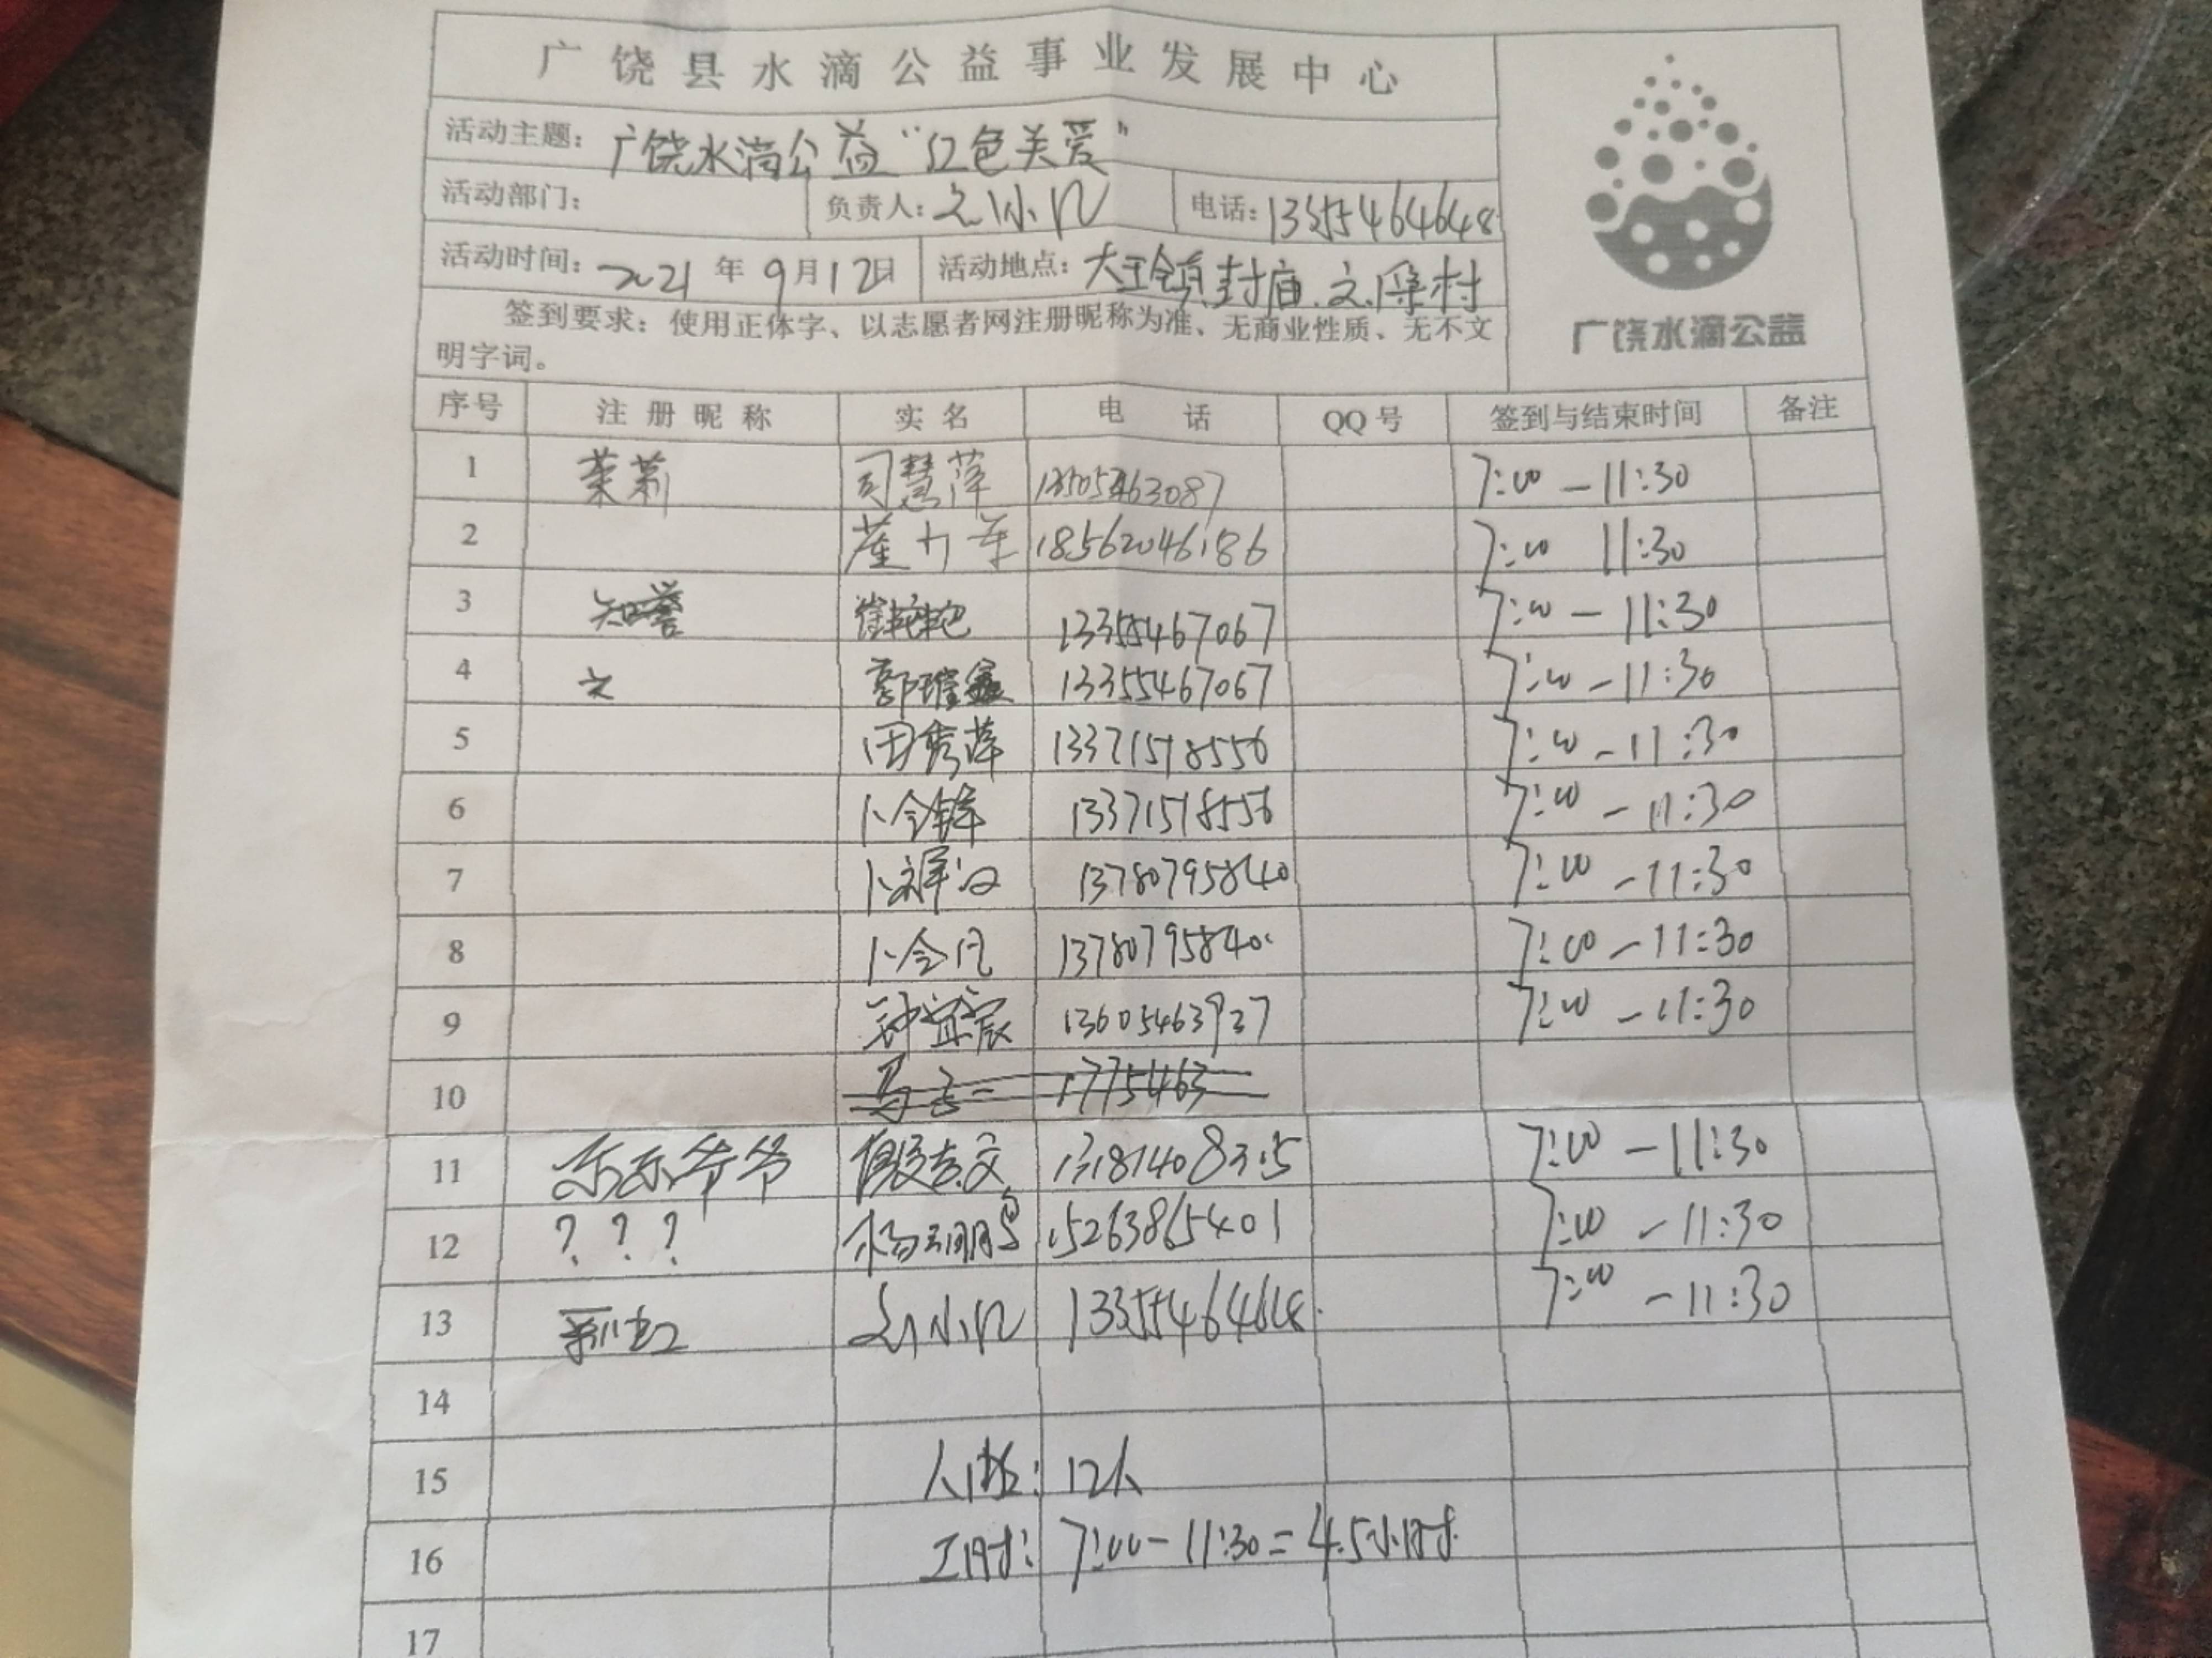 广饶县水滴公益事业发展中心
活动主题：广饶水滴公益“红色关爱”
活动部门： 负责人： 电话：13355464648
活动时间：2021年9月12日 活动地点：大王镇封庙.
签到要求：使用正体字、以志愿者网注册昵称为准、无商业性质、无不文
明字词。
广饶水滴公益
序号 注册昵称 实名 电话 QQ号 签到与结束时间 备注
1 茉莉 司慧萍 13505463087 7:00-11:30
2 18562046186 7:00 11:30
3 知誉 13355467067 7:00-11:30
4 文 13355467067 7:00-11:30
5 田秀萍 13371518556 7:00-11:30
6 卜令锋 13371518556 7:00-11:30
7 13780795840 7:00-11:30
8 13780795840 7:00-11:30
9 钟宜宸 13605463927 7:00-11:30
10
11 乐乐爷爷 13181408315 7:00-11:30
12 ？？？ 15263865401 7:00-11:30
13 13355464648 7:00-11:30
14
15 12人
16 工时：7:00-11:30=4.5小时.
17